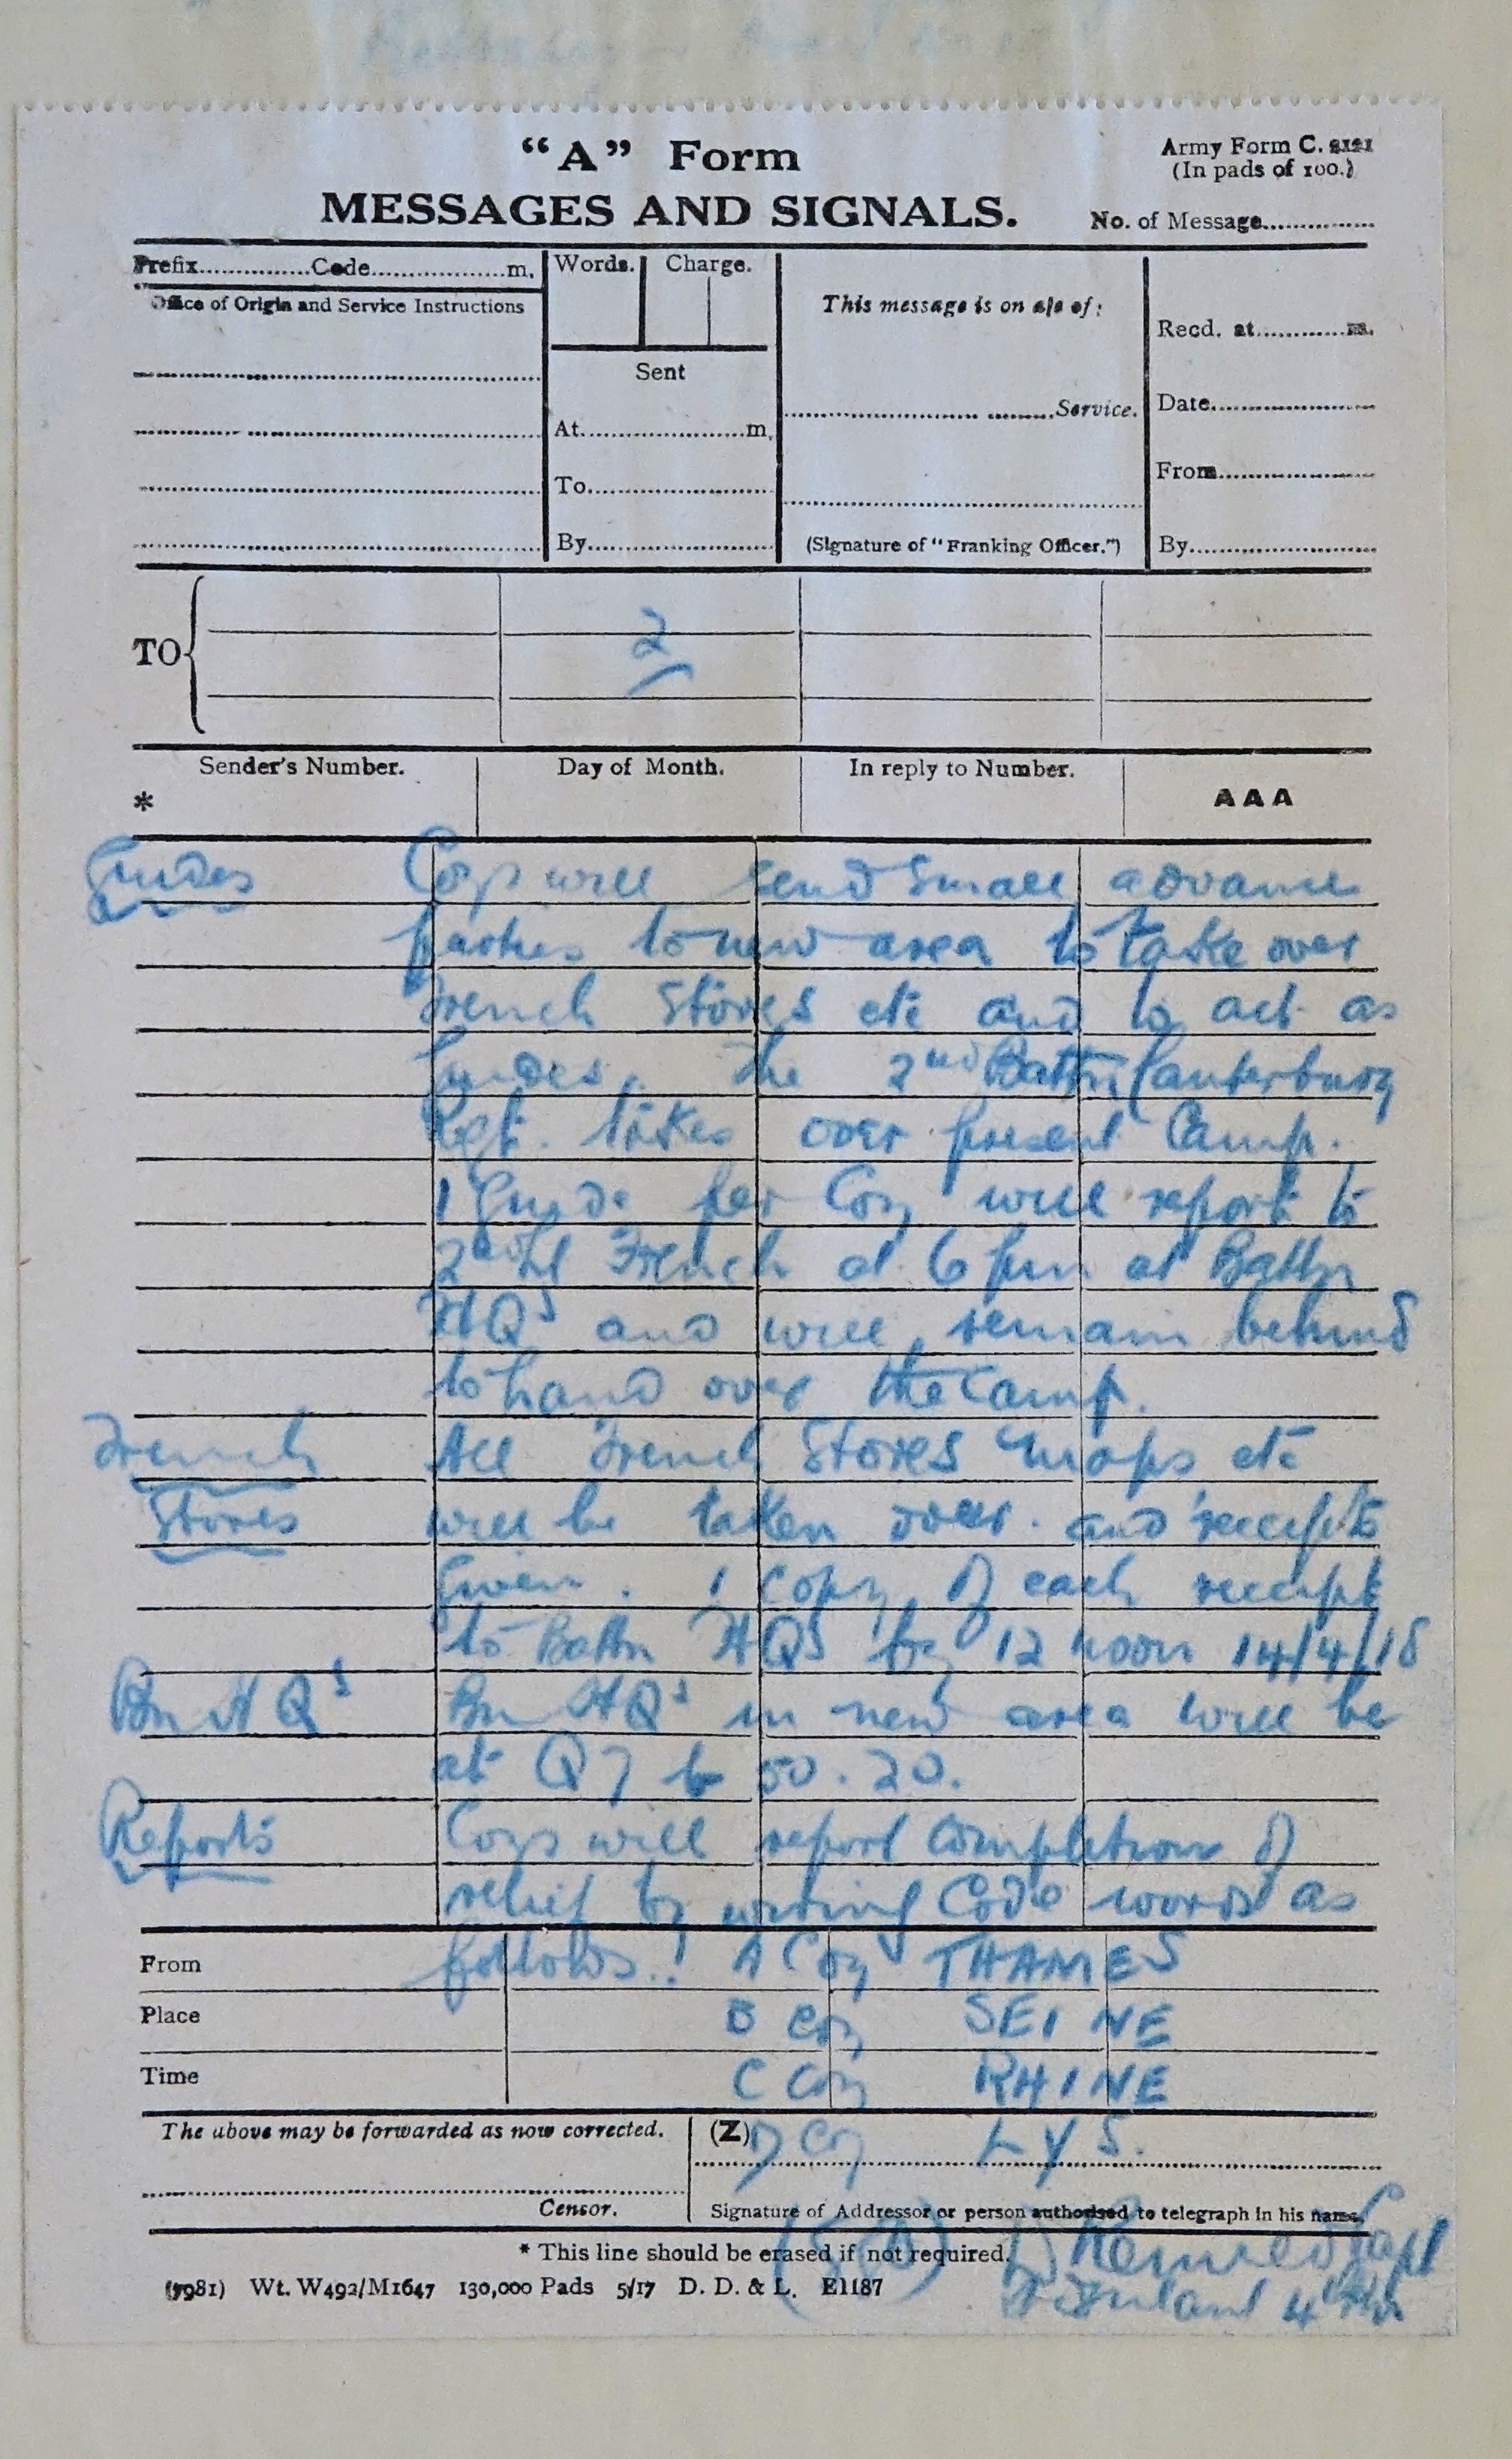 “A” Form
MESSAGES AND SIGNALS.
Army Form C. 2121
(In pads of 100.)
No. of Message...............
Prefix...............Code...................m.
Words. Charge.
Office of Origin and Service Instructions
Sent
At.......................m.
To.........................
By.........................
This message is on a/c of:
...........................Service.
(Signature of “Franking Officer.”)
Recd. at............m.
Date.......................
From......................
By.........................
TO
2
Sender's Number.
Day of Month.
In reply to Number.
AAA
*
Guides Coys will send small advance
parties to new area to take over
trench stores etc and to act as
Guides. The 2nd Battn Canterbury
Regt. takes over present Camp.
1 Guide per Coy will report to
2nd Lt French at 6 pm at Battn
HQs and will remain behind
to hand over the Camp.
Trench All trench Stores Maps etc
Stores will be taken over and receipts
given. 1 Copy of each receipt
to Battn HQs by 12 noon 14/4/18
Bn HQs Bn HQs in new area will be
at Q 7 b 50.20.
Reports Coys will report completion of
relief by wiring Code words as
follows: A Coy THAMES
B Coy SEINE
C Coy RHINE
D Coy LYS.
From
Place
Time
The above may be forwarded as now corrected.
(Z)
Censor.
Signature of Addressor or person authorised to telegraph in his name.
* This line should be erased if not required.
(Sgd) Capt
(7981) Wt. W492/M1647 130,000 Pads 5/17 D. D. & L. E1187